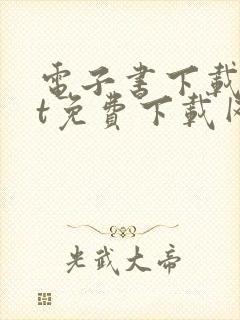 電子書下載
t免費下載
光武大帝